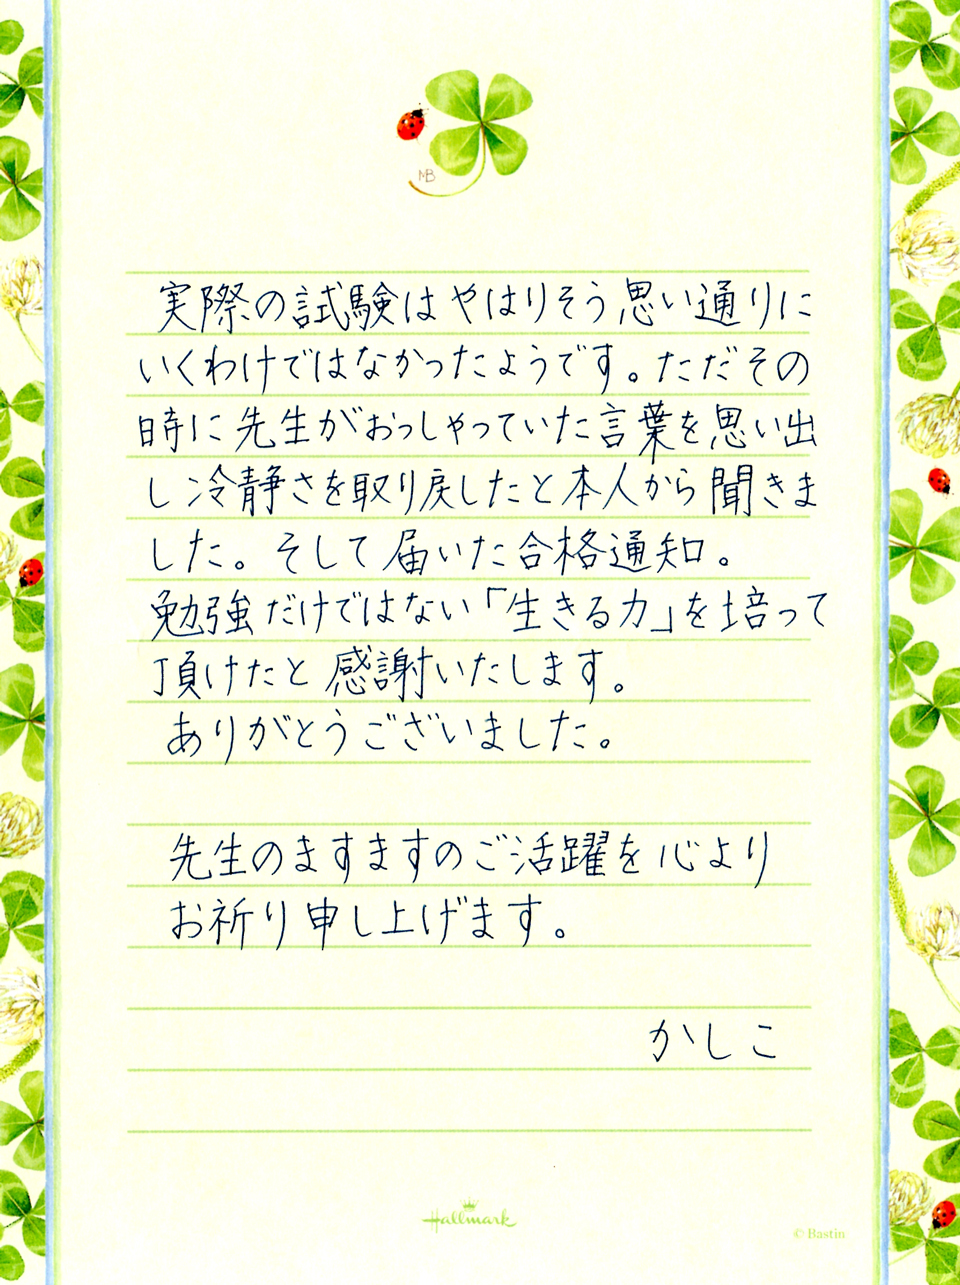 MB
実際の試験はやはりそう思い通りに
いくわけではなかったようです。ただその
時に先生がおっしゃっていた言葉を思い出
し冷静さを取り戻したと本人から聞きま
した。そして届いた合格通知。
勉強だけではない「生きる力」を培って
頂けたと感謝いたします。
ありがとうございました。
先生のますますのご活躍を心より
お祈り申し上げます。
かしこ
Hallmark
© Bastin